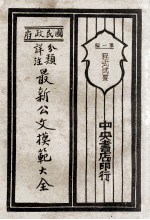 國民政府
分類詳注
最新公文模範大全
第一編
中央書店印行